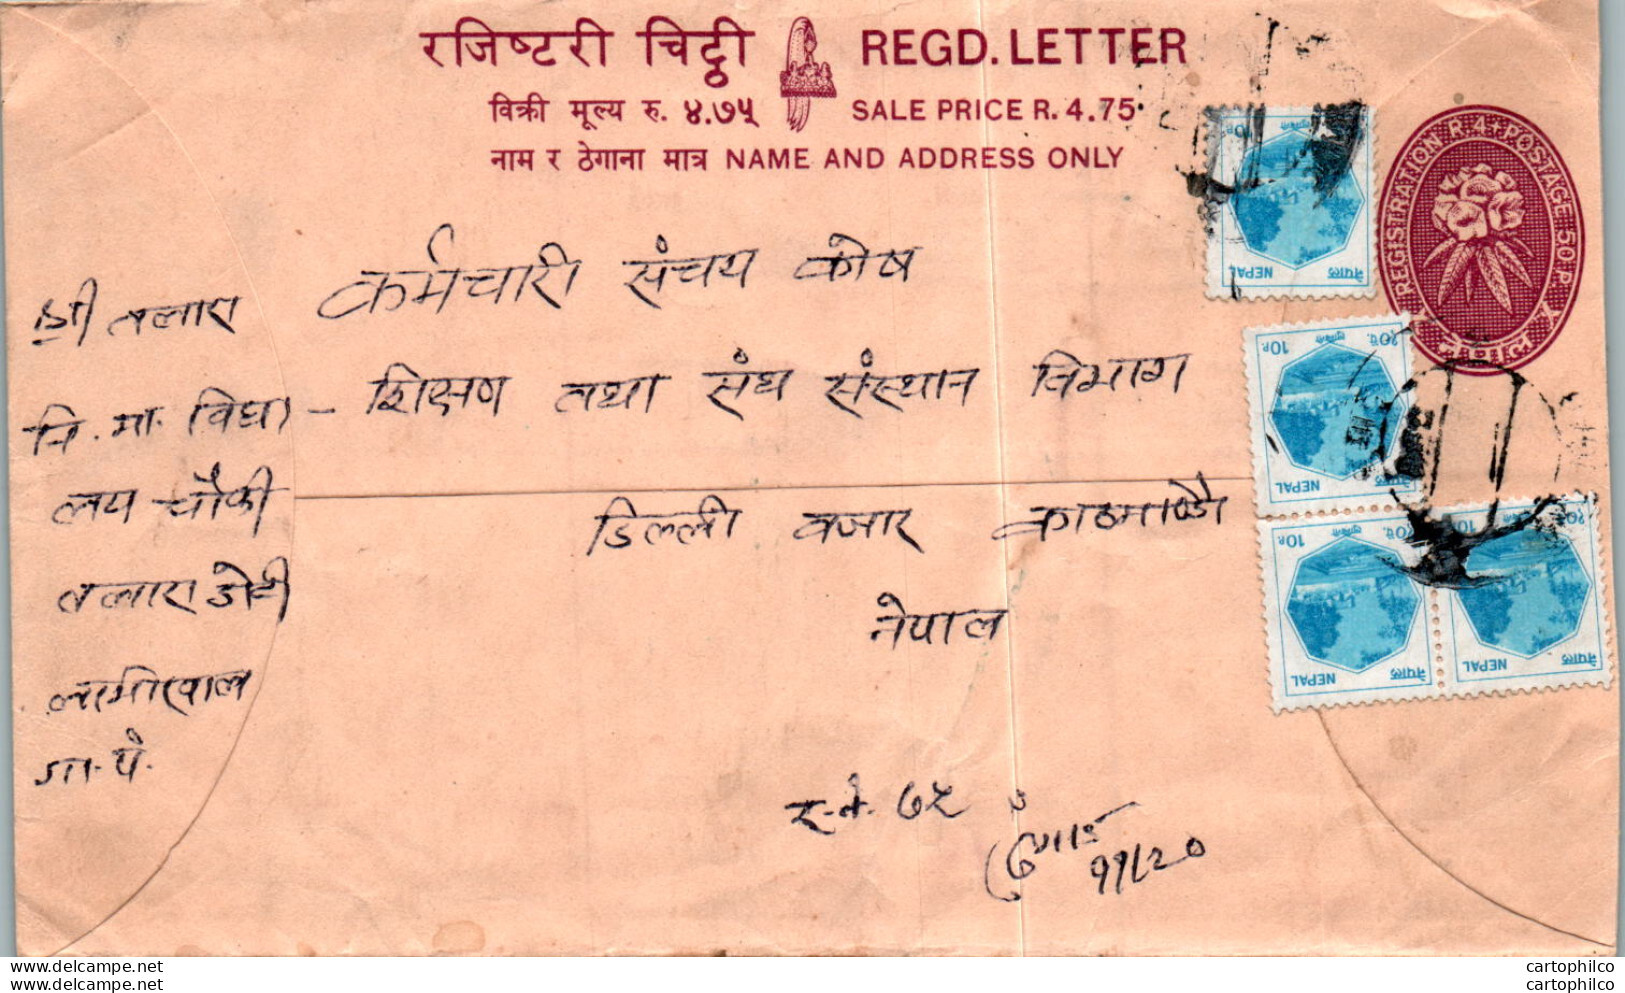 रजिष्टरी चिट्ठी REGD. LETTER
विक्री मूल्य रु. ४.७५ SALE PRICE R. 4.75
नाम र ठेगाना मात्र NAME AND ADDRESS ONLY
REGISTRATION R.4. POSTAGE 50 P.
नेपाल
कर्मचारी संचय कोष
शिक्षण तथा संघ संस्थान विभाग
डिल्ली वजार काठमाण्डौ
नेपाल
श्री तलारा
नि. मा. विद्या-
लय चौकी
तलारा डोटी
गा. पं.
र. नं. ७५
११/२०
NEPAL नेपाल
10P. १०पै.
NEPAL नेपाल
10P. १०पै.
NEPAL नेपाल
10P. १०पै.
NEPAL नेपाल
10P. १०पै.
www.delcampe.net
www.delcampe.net
cartophilco
cartophilco